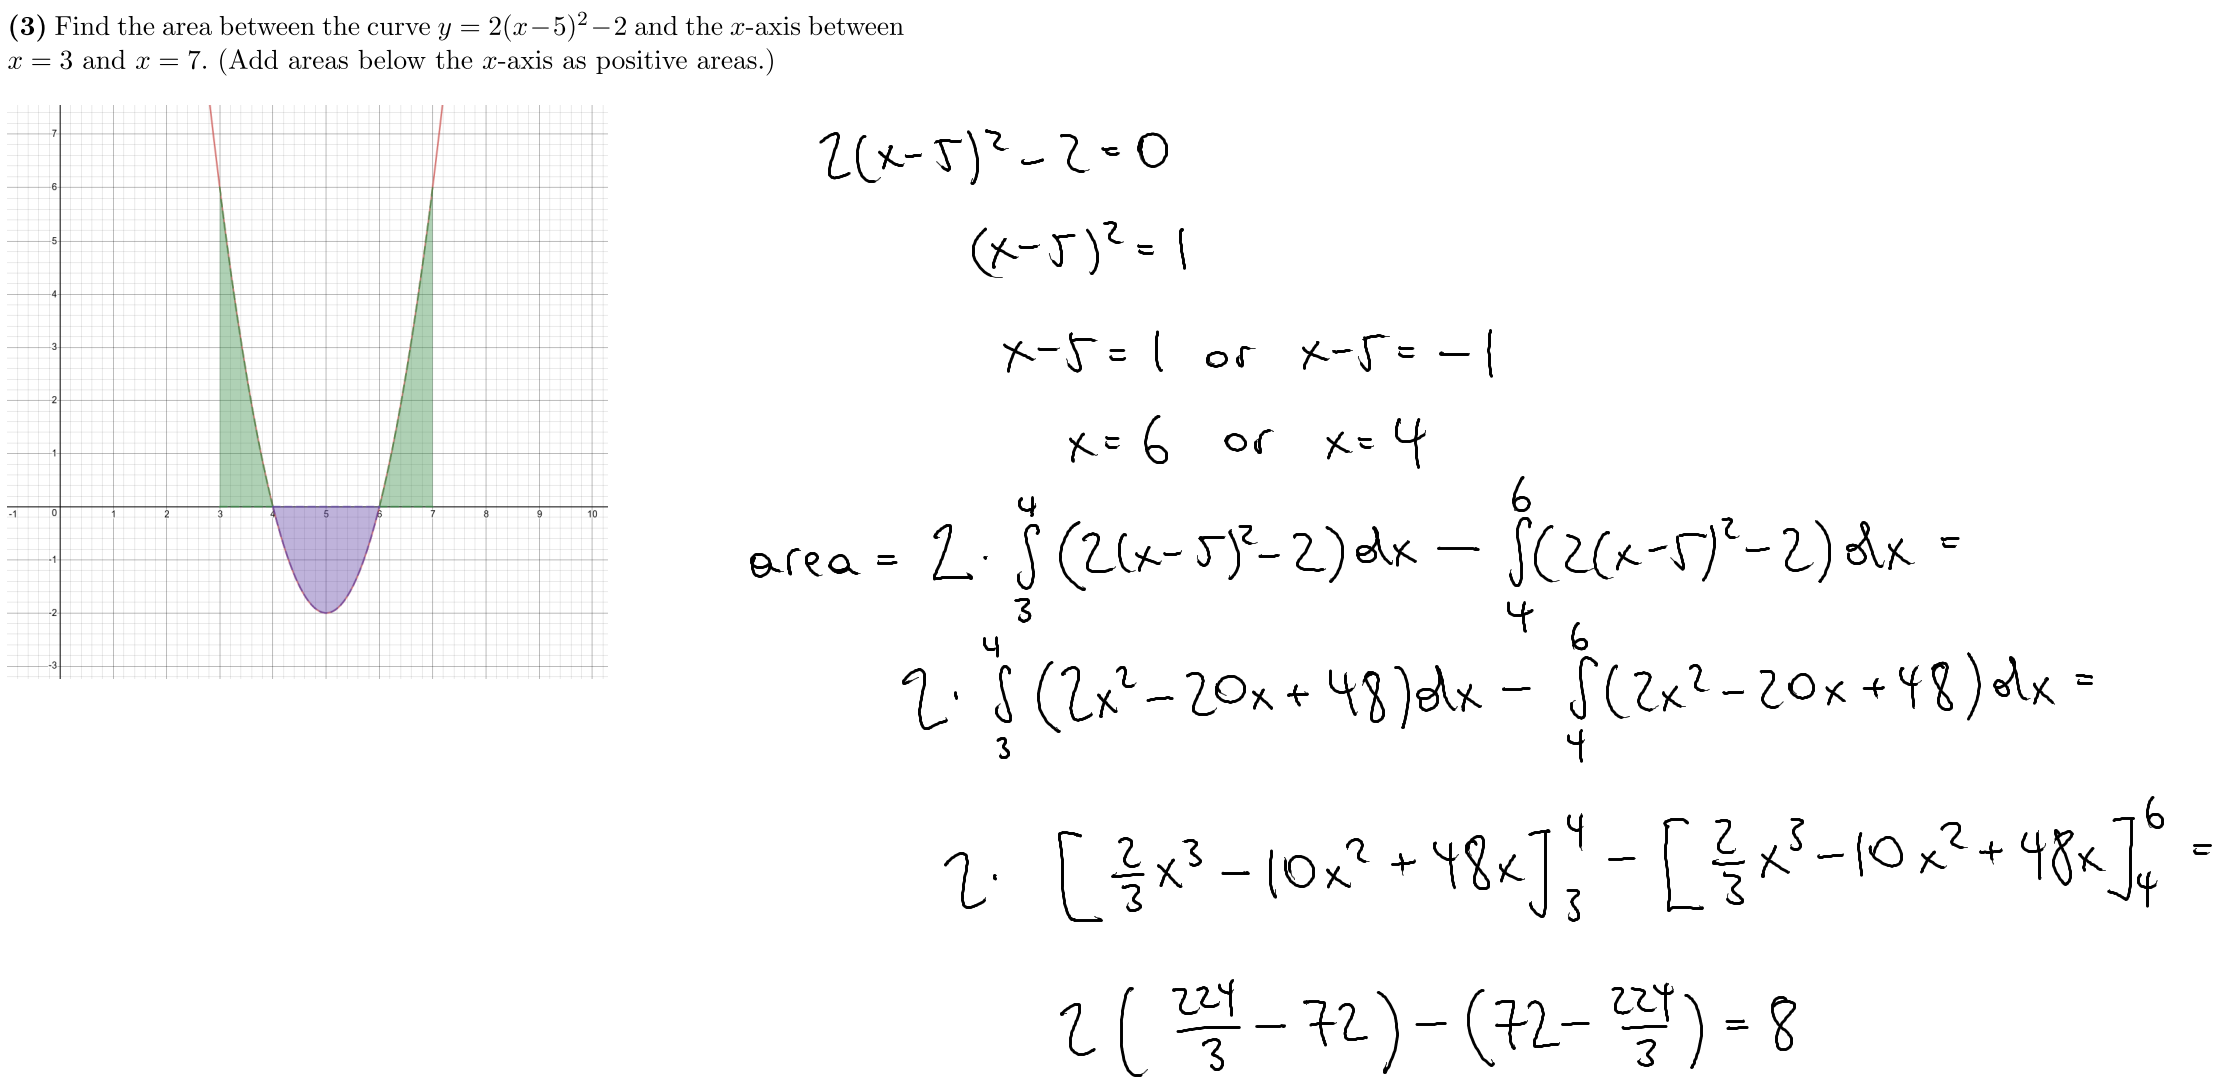 (3) Find the area between the curve y = 2(x−5)²−2 and the x-axis between
x = 3 and x = 7. (Add areas below the x-axis as positive areas.)
7
6
5
4
3
2
1
-1 0 1 2 3 4 5 6 7 8 9 10
-1
-2
-3
2(x-5)² - 2 = 0
(x-5)² = 1
x-5 = 1 or x-5 = -1
x = 6 or x = 4
area = 2 · ∫₃⁴ (2(x-5)²-2) dx − ∫₄⁶ (2(x-5)²-2) dx =
2 · ∫₃⁴ (2x² - 20x + 48) dx − ∫₄⁶ (2x² - 20x + 48) dx =
2 · [2/3 x³ - 10x² + 48x]₃⁴ − [2/3 x³ - 10x² + 48x]₄⁶ =
2 (224/3 - 72) - (72 - 224/3) = 8